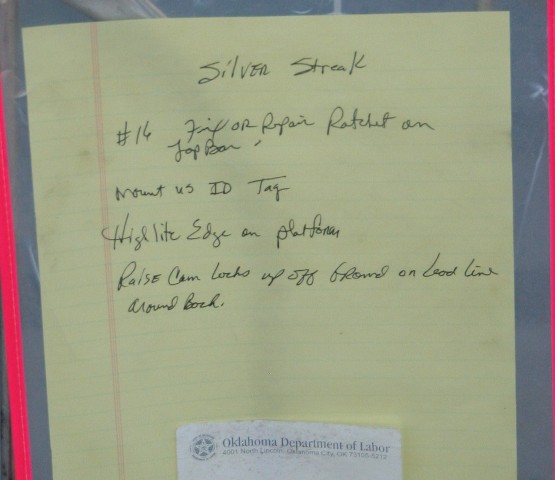 Silver Streak
#16 Fix or Repair Ratchet on
Lap Bar
Mount US ID Tag
High lite Edge on platform
Raise Cam Locks up off Ground on Lead Line
around Back.
Oklahoma Department of Labor
4001 North Lincoln, Oklahoma City, OK 73105-5212